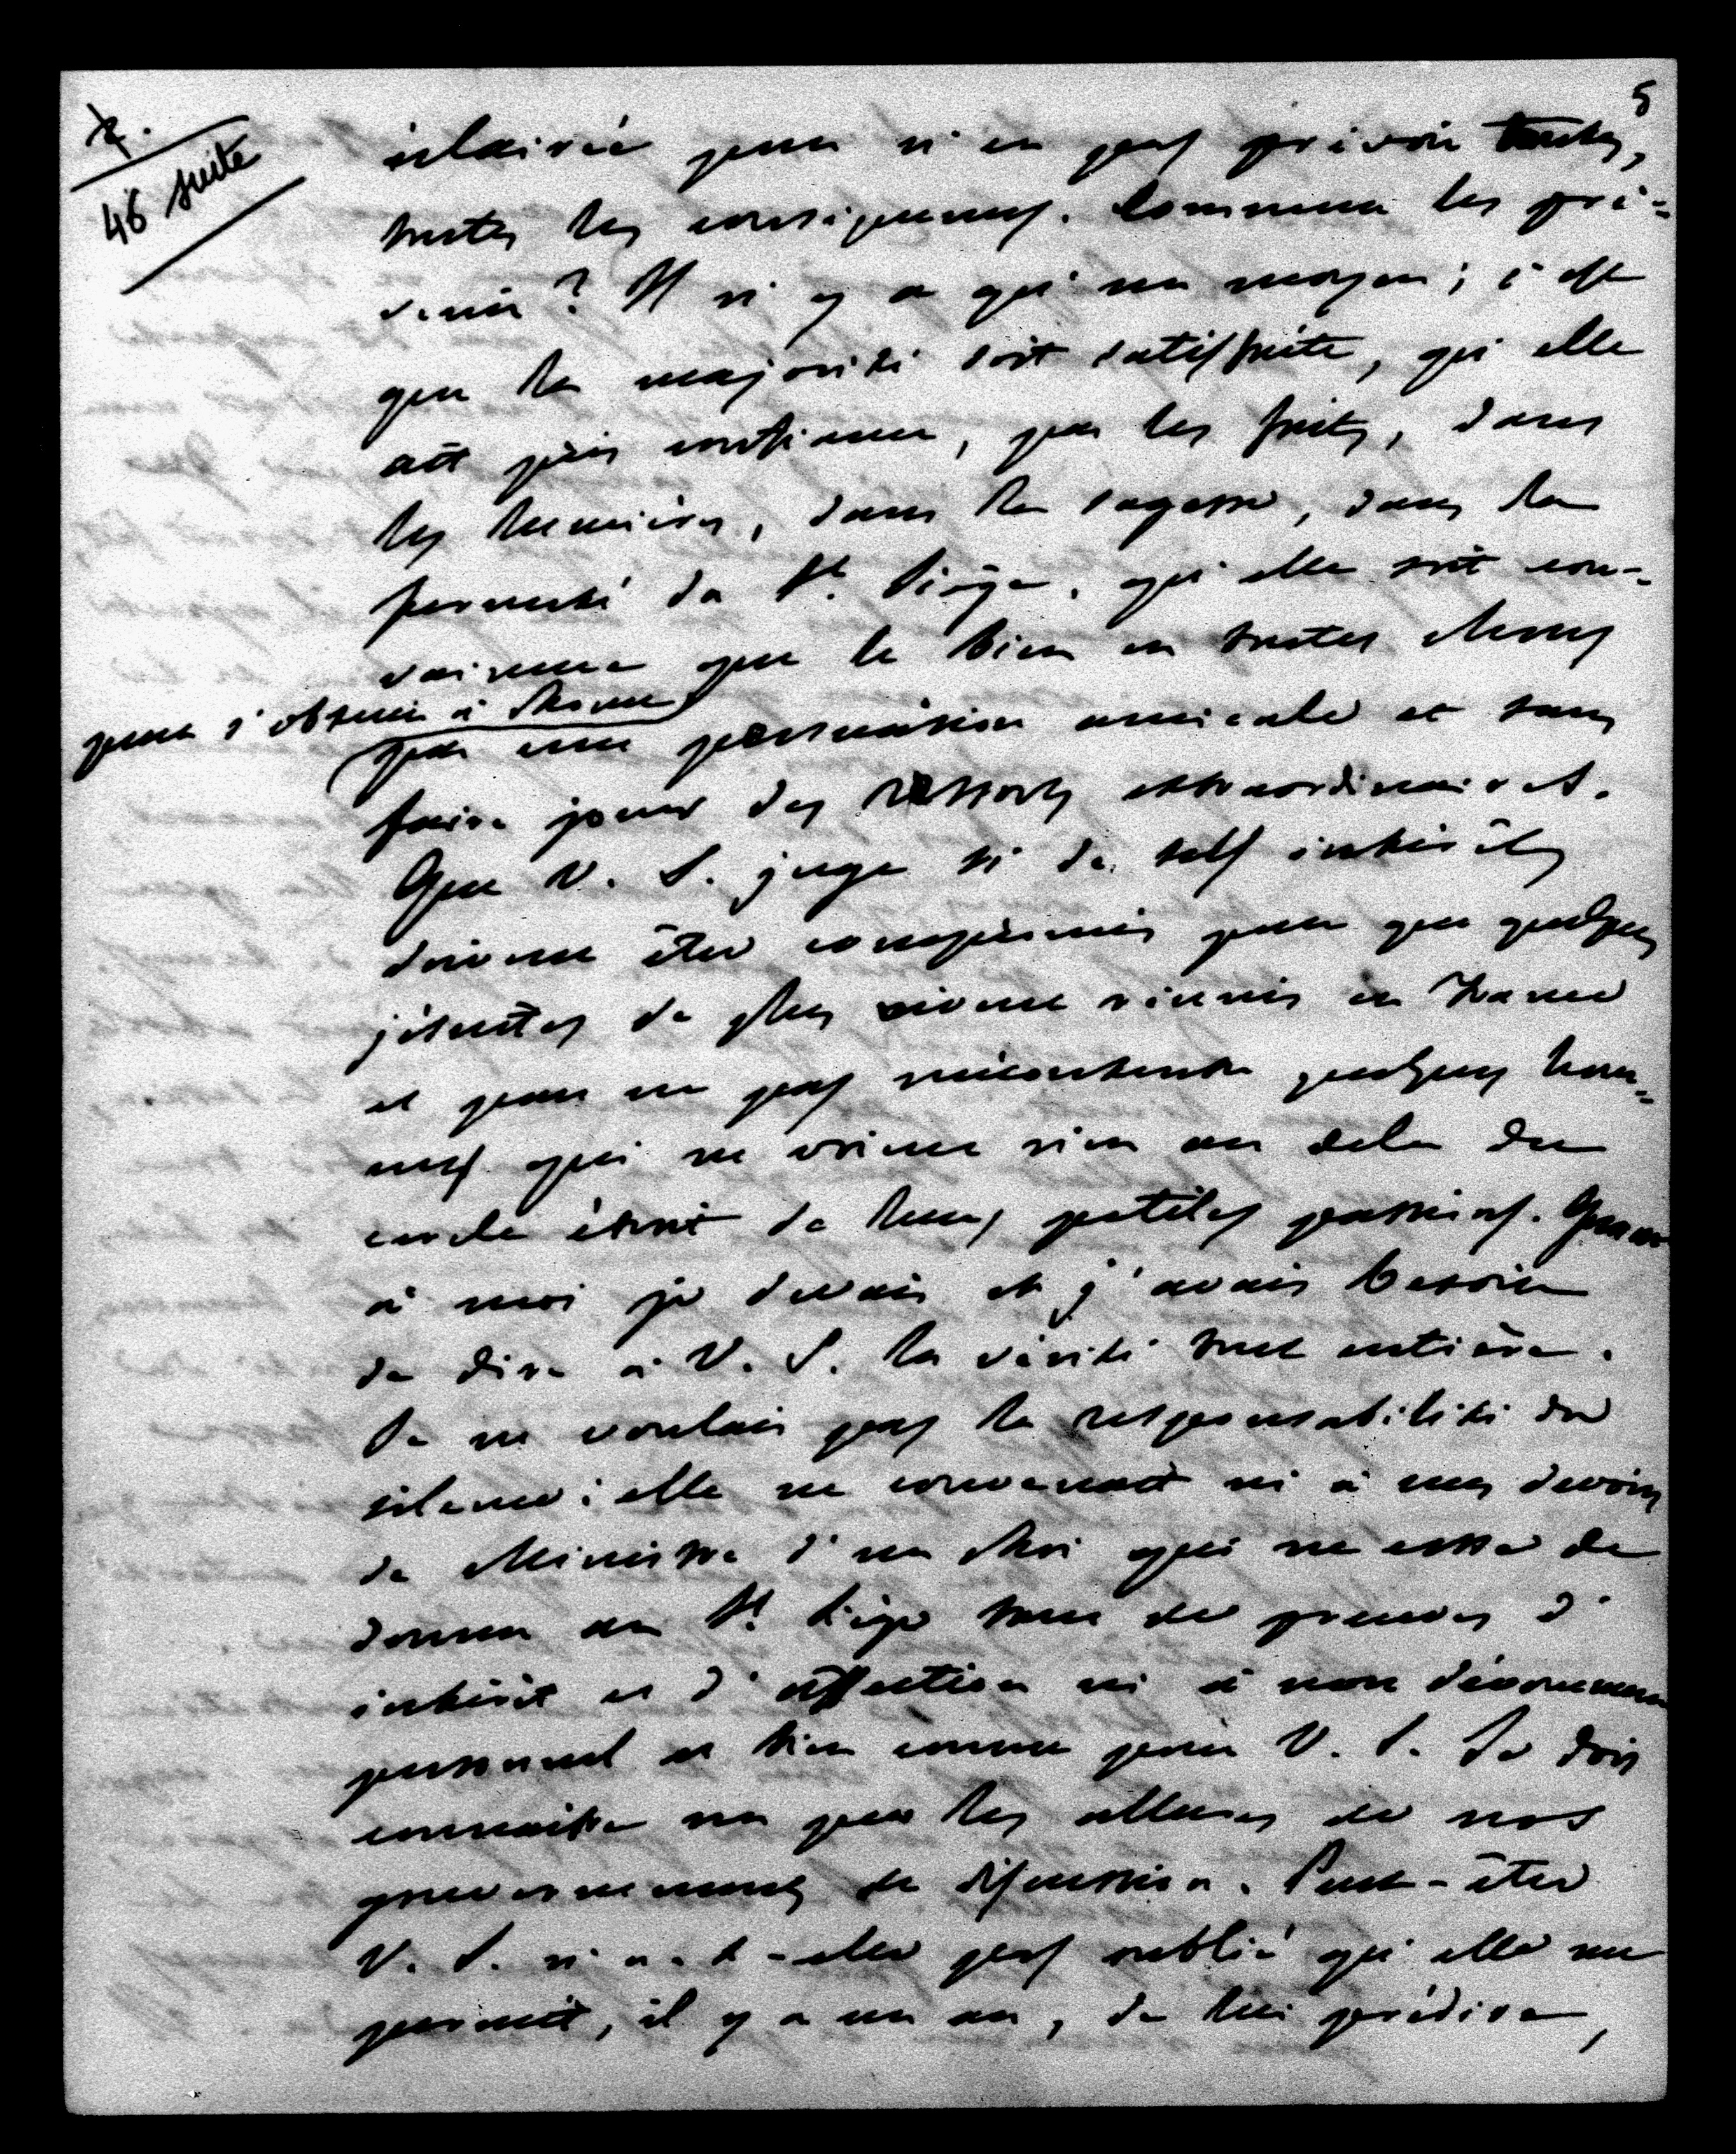 5
46 suite
éclairée pour n'en pas prévoir toutes,
toutes les conséquences. Comment les pré=
venir ? Il n'y a qu'un moyen ; c'est
que la majorité soit satisfaite, qu'elle
ait pris confiance, par les faits, dans
les lumières, dans la sagesse, dans la
fermeté du St. Siège, qu'elle soit con-
vaincue que le bien en toutes choses
peut s'obtenir à Rome
par une persuasion amicale et sans
faire jouer des ressorts extraordinaires.
Que V. S. juge si de tels intérêts
doivent être compromis pour que quelques
jésuites de plus vivent réunis en France
et pour ne pas mécontenter quelques hom=
mes qui ne voient rien au delà du
cercle étroit de leurs petites passions. Quant
à moi je devais et j'avais besoin
de dire à V. S. la vérité tout entière.
Je ne voulais pas la responsabilité du
silence : elle ne convenait ni à mes devoirs
de Ministre d'un Roi qui ne cesse de
donner au St. Siège tant de preuves d'
intérêt et d'affection ni à mon dévouement
personnel et bien connu pour V. S. Je dois
connaître un peu les allures de nos
gouvernements de discussion. Peut-être
V. S. n'a-t-elle pas oublié qu'elle me
permit, il y a un an, de lui prédire,